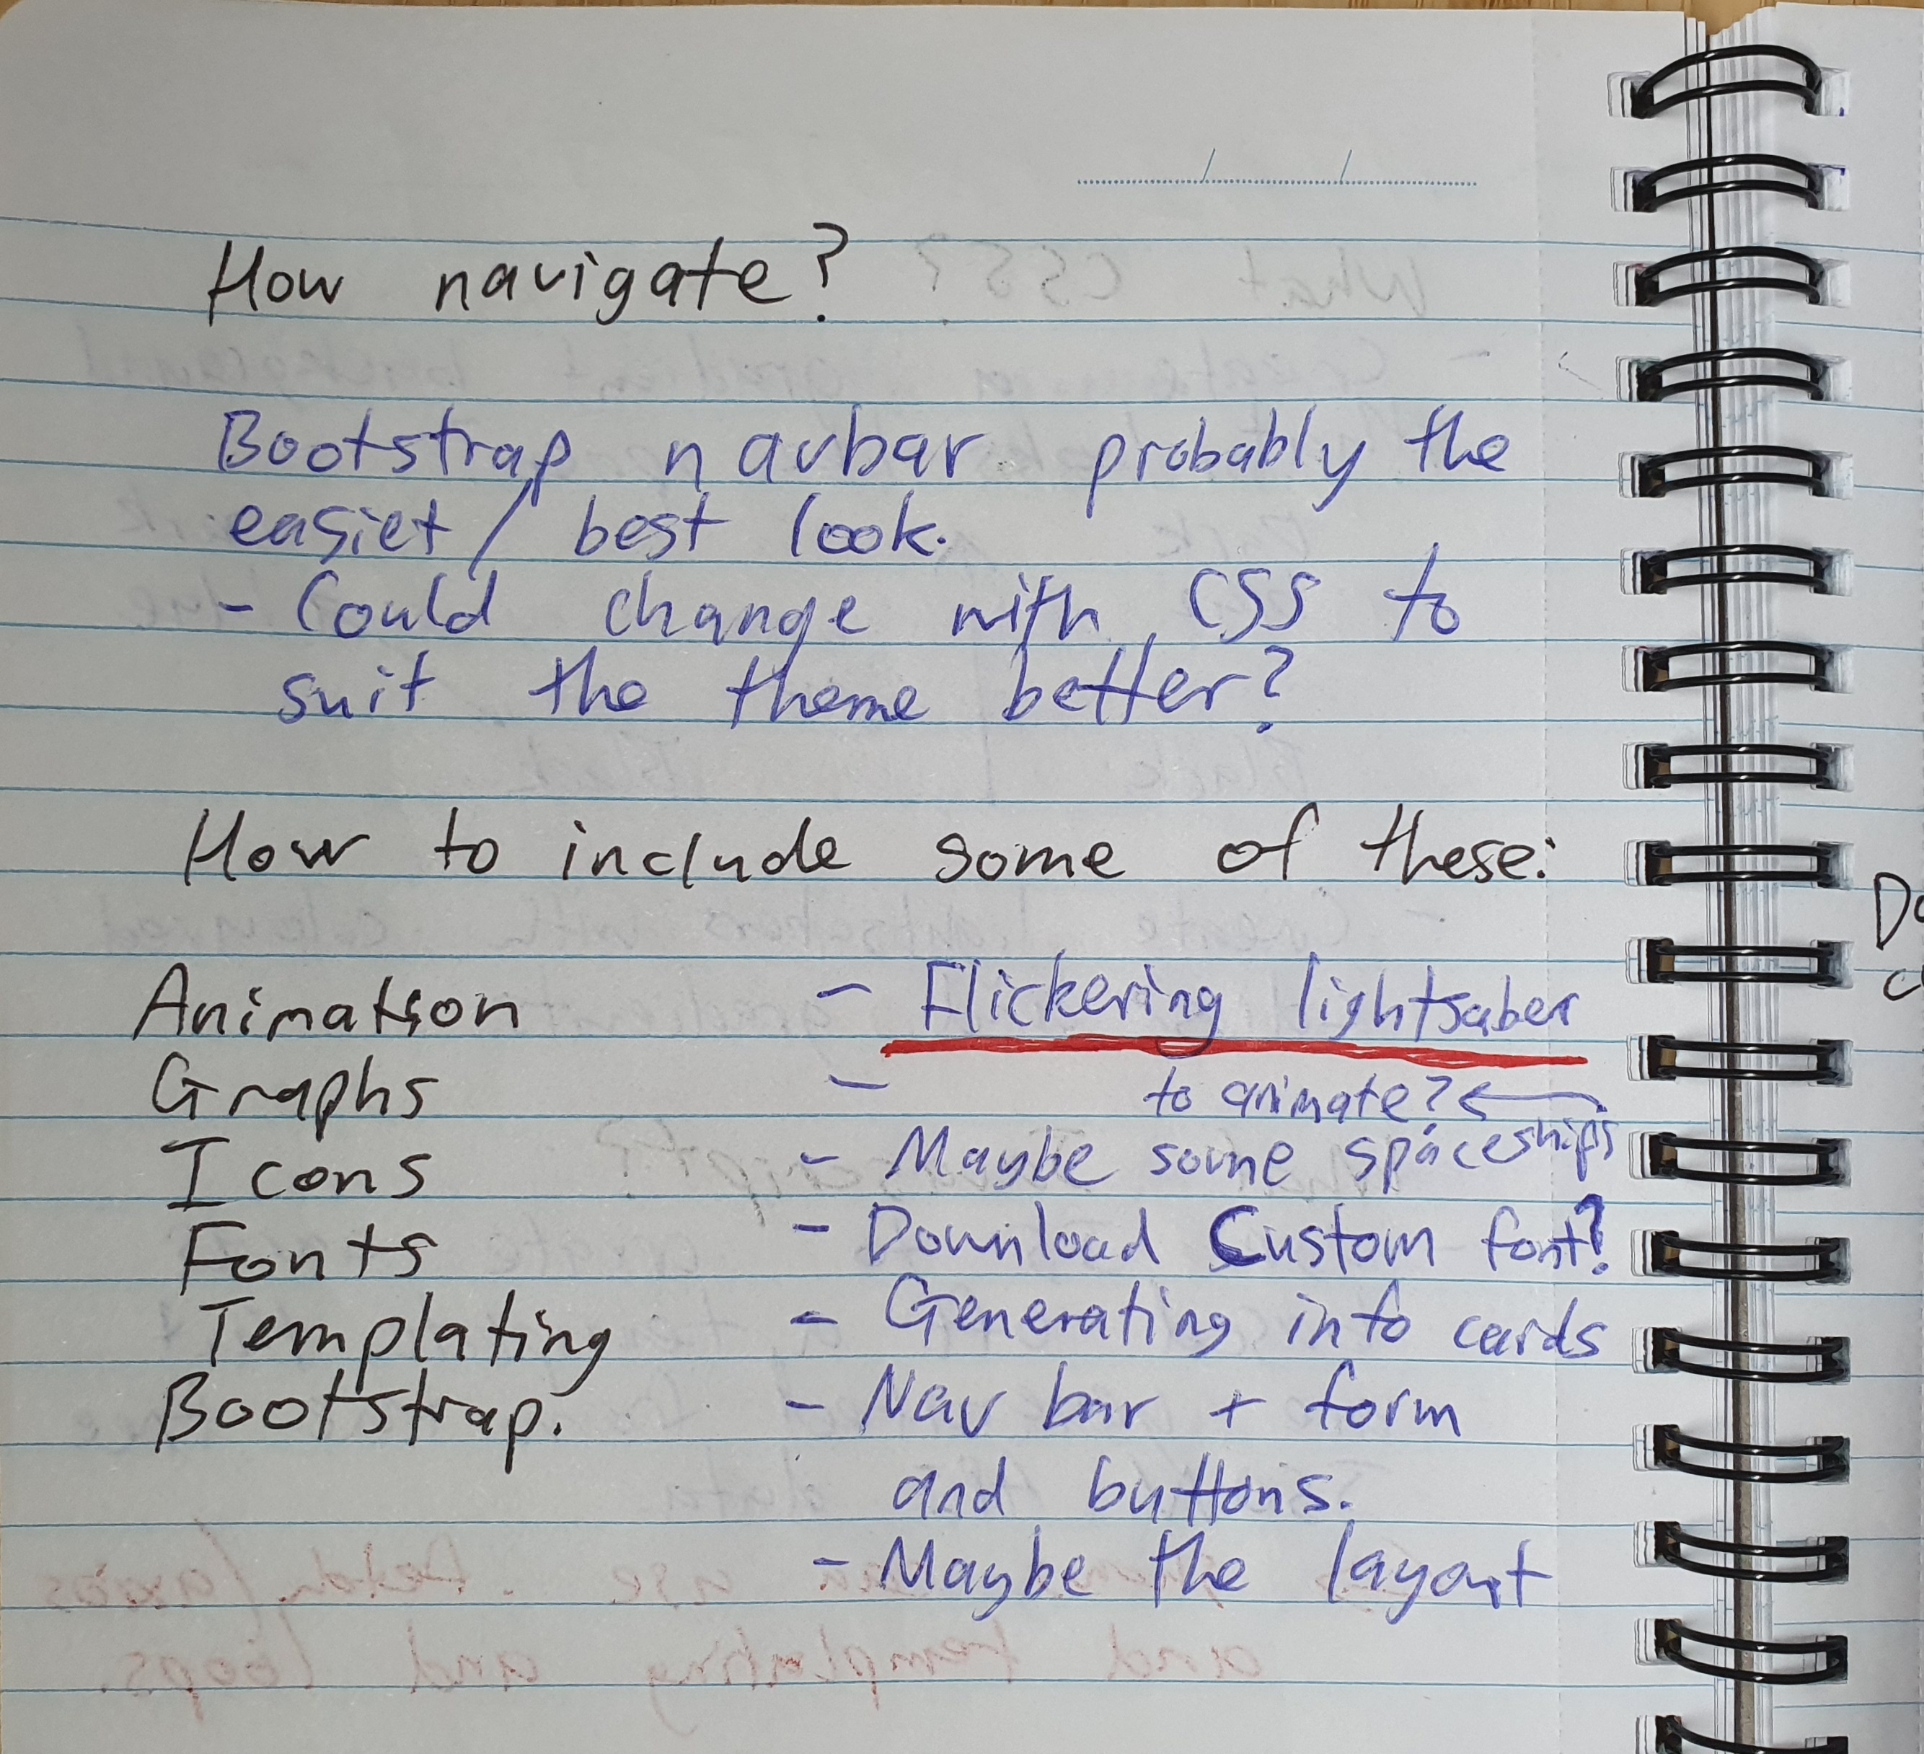 How navigate?
Bootstrap navbar probably the
easiest / best look.
- Could change with CSS to
suit the theme better?
How to include some of these:
Animation - Flickering lightsaber
Graphs -
to animate??
Icons - Maybe some spaceships
Fonts - Download Custom font?
Templating - Generating into cards
Bootstrap. - Nav bar + form
and buttons.
- Maybe the layout